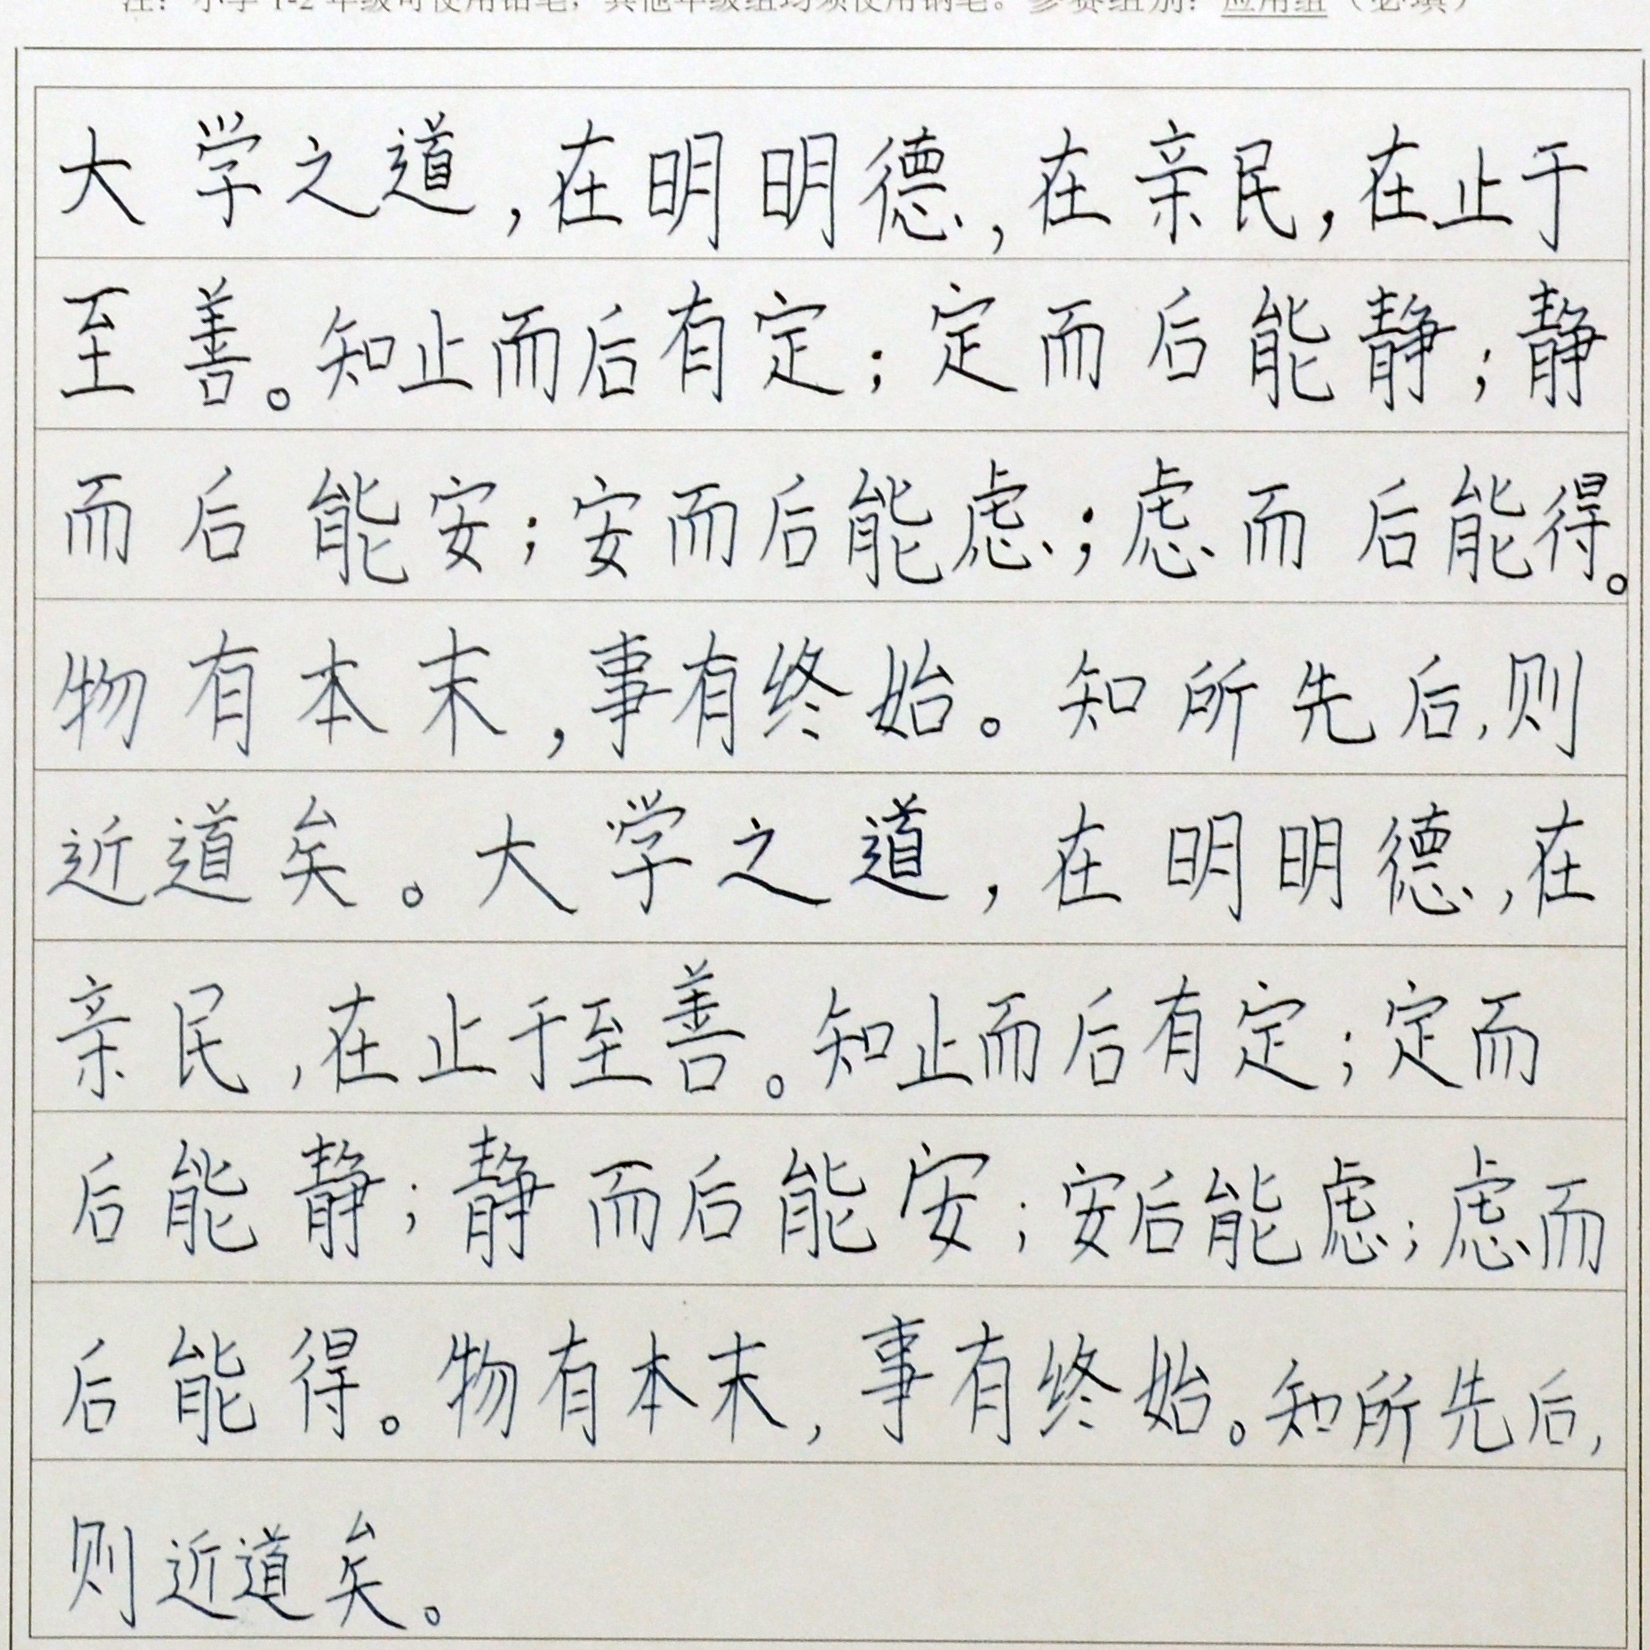 注：小学 1-2 年级可使用铅笔，其他年级组均须使用钢笔。参赛组别：应用组（必填）
大学之道，在明明德，在亲民，在止于
至善。知止而后有定；定而后能静；静
而后能安；安而后能虑；虑而后能得。
物有本末，事有终始。知所先后，则
近道矣。大学之道，在明明德，在
亲民，在止于至善。知止而后有定；定而
后能静；静而后能安；安后能虑；虑而
后能得。物有本末，事有终始。知所先后，
则近道矣。